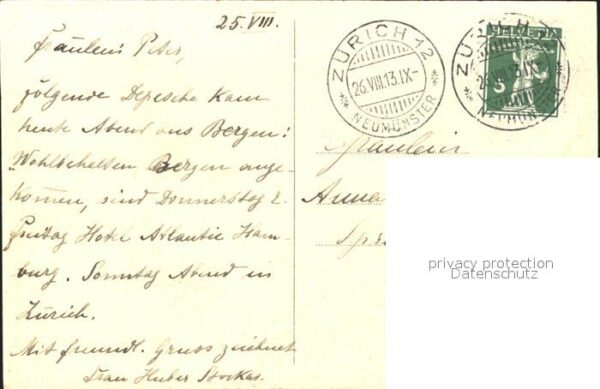 25.VIII.
Fräulein Peter,
folgende Depesche kam
heute Abend aus Bergen:
Wohlbehalten Bergen ange-
kommen, sind Donnerstag &
Freitag Hotel Atlantic Ham-
burg. Sonntag Abend in
Zürich.
Mit freundl. Gruss zeichnet
Frau Huber Stockar.
ZÜRICH 12
26.VIII.13.IX-
NEUMÜNSTER
HELVETIA
5
ZÜRICH 12
26.VIII.13.IX-
NEUMÜNSTER
Fräulein
Anna
privacy protection
Datenschutz